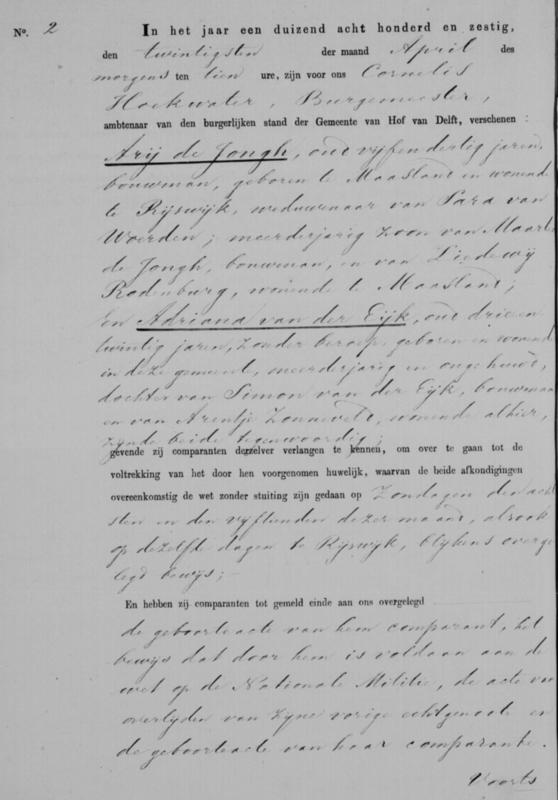 No. 2 In het jaar een duizend acht honderd en zestig,
den twintigsten der maand April des
morgens ten tien ure, zijn voor ons Cornelis
Hoekwater, Burgemeester,
ambtenaar van den burgerlijken stand der Gemeente van Hof van Delft, verschenen :
Arij de Jongh, oud vijfendertig jaren,
bouwman, geboren te Maasland en wonende
te Rijswijk, weduwenaar van Sara van
Woerden; meerderjarig zoon van Maarten
de Jongh, bouwman, en van Liedewij
Rodenburg, wonende te Maasland;
En Adriana van der Eijk, oud drieen
twintig jaren, zonder beroep, geboren en wonende
in deze gemeente, meerderjarig en ongehuwd,
dochter van Simon van der Eijk, bouwman
en van Arentje Zonneveld, wonende alhier,
zijnde beide tegenwoordig;
gevende zij comparanten derzelver verlangen te kennen, om over te gaan tot de
voltrekking van het door hen voorgenomen huwelijk, waarvan de beide afkondigingen
overeenkomstig de wet zonder stuiting zijn gedaan op Zondagen den acht
sten en den vijftienden dezer maand, alsook
op dezelfde dagen te Rijswijk, blijkens overge
legd bewijs;
En hebben zij comparanten tot gemeld einde aan ons overgelegd
de geboorteacte van hem comparant, het
bewijs dat door hem is voldaan aan de
wet op de Nationale Militie, de acte van
overlijden van zijne vorige echtgenoote en
de geboorteacte van haar comparante.
Voorts